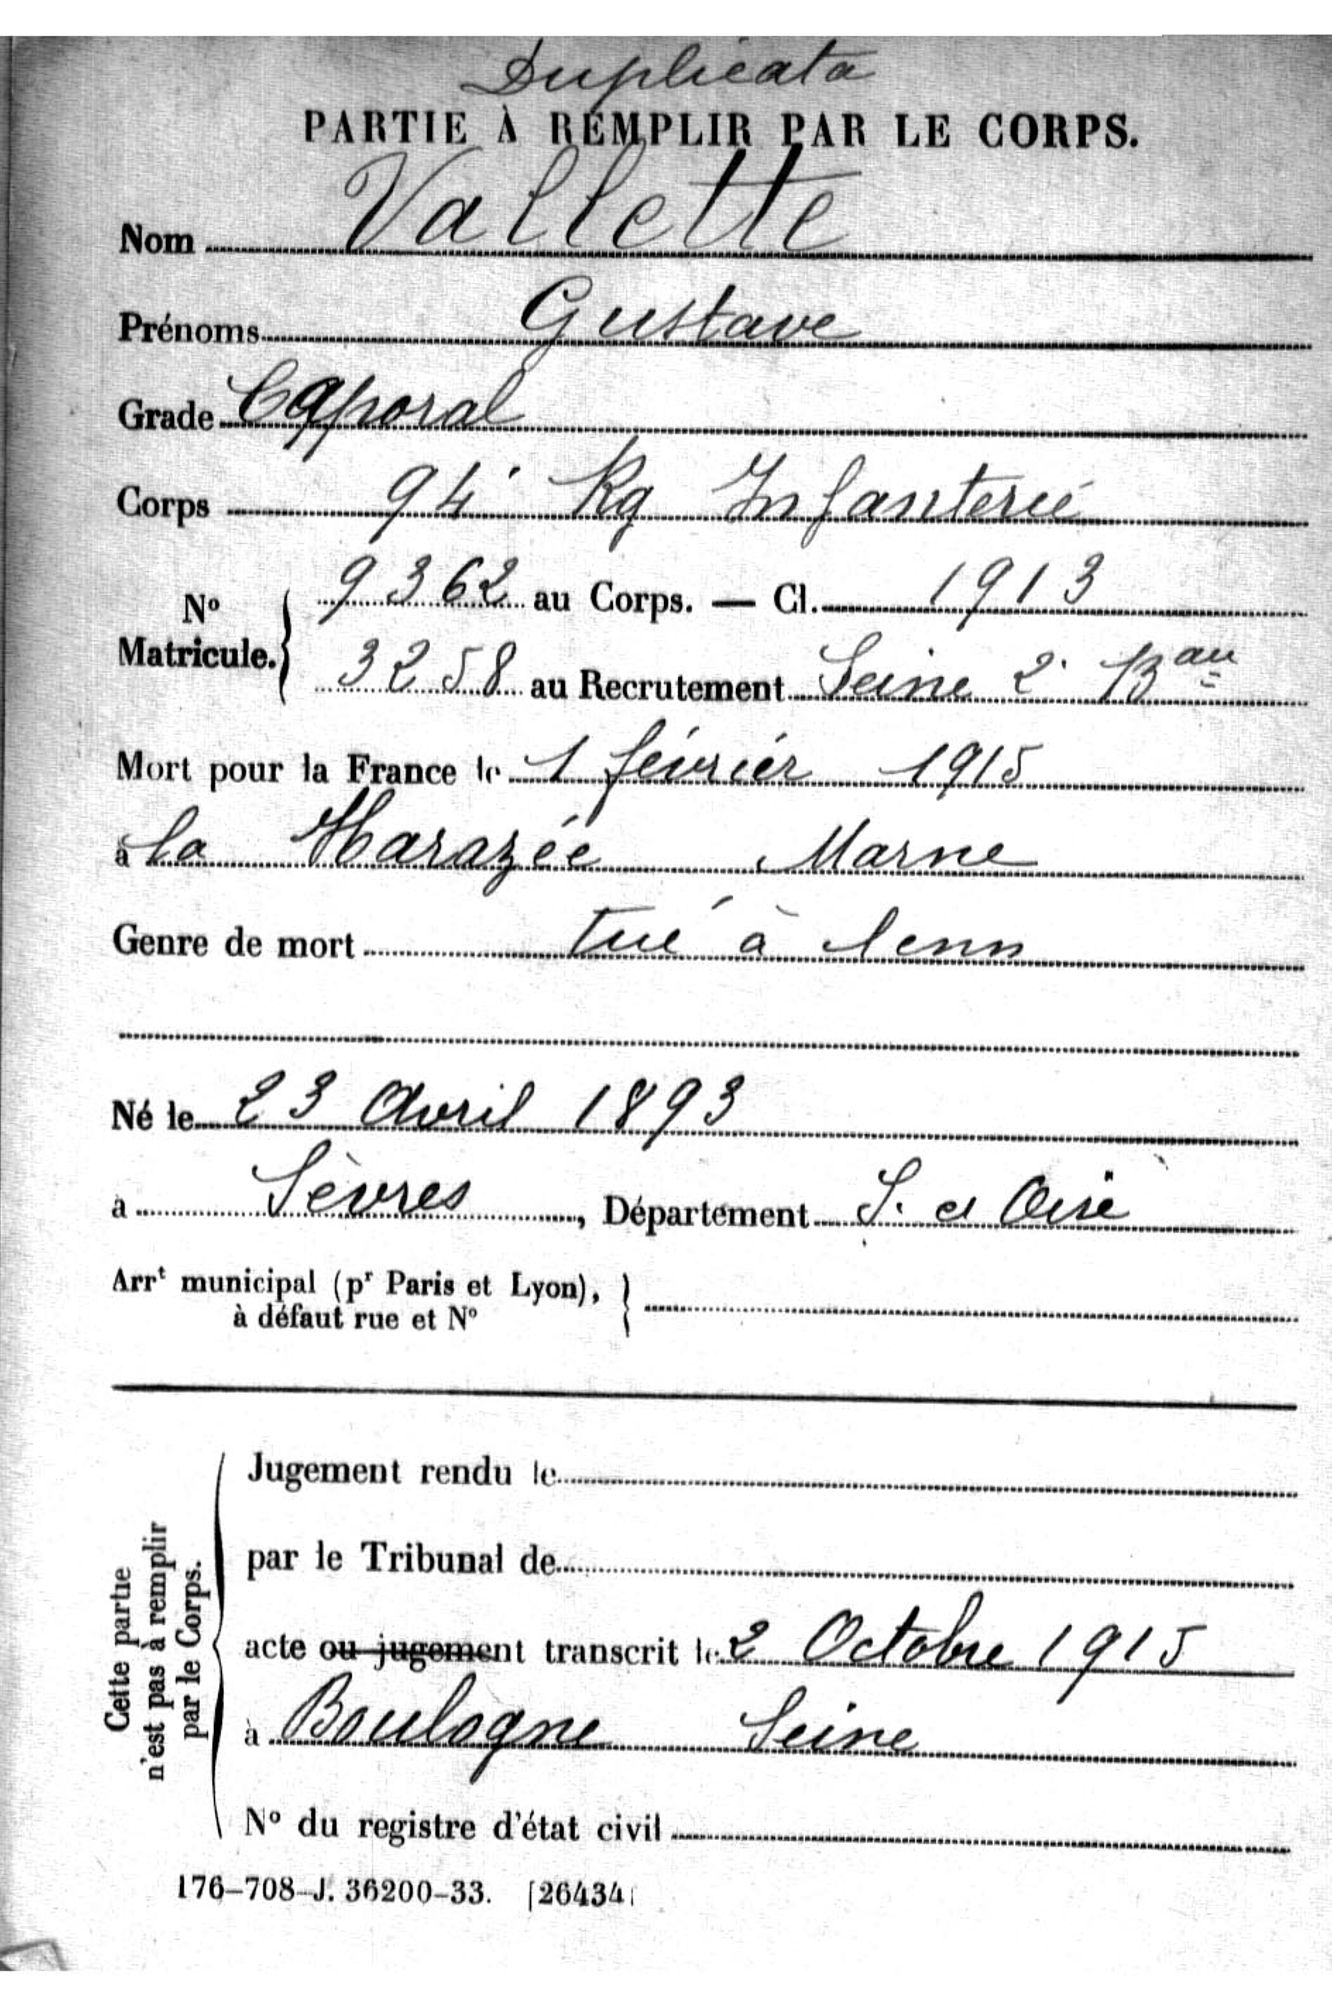 Duplicata
PARTIE À REMPLIR PAR LE CORPS.
Nom Vallette
Prénoms Gustave
Grade Caporal
Corps 94e Rg Infanterie
No Matricule. { 9362 au Corps. — Cl. 1913
3258 au Recrutement Seine 2e Bau
Mort pour la France le 1 février 1915
à la Harazée Marne
Genre de mort tué à lenn
Né le 23 Avril 1893
à Sèvres, Département S. et Oise
Arrt municipal (pr Paris et Lyon),
à défaut rue et No
Cette partie n'est pas à remplir par le Corps.
Jugement rendu le
par le Tribunal de
acte ou jugement transcrit le 2 Octobre 1915
à Boulogne Seine
No du registre d'état civil
176-708-J. 36200-33. [26434